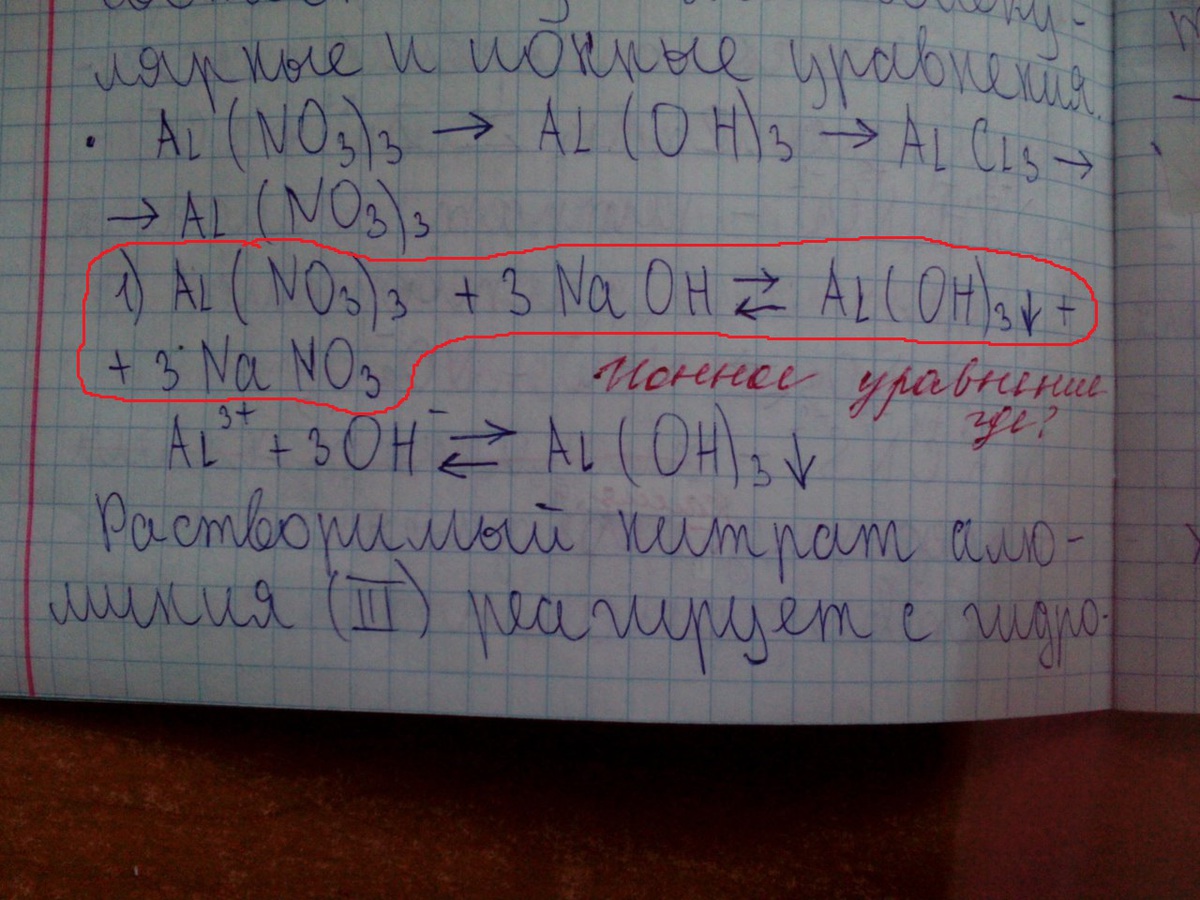 лярные и ионные уравнения.
• Al(NO3)3 → Al(OH)3 → AlCl3 →
→ Al(NO3)3
1) Al(NO3)3 + 3NaOH ⇄ Al(OH)3↓ +
+ 3NaNO3
Ионное уравнение
где?
Al³⁺ + 3OH⁻ ⇄ Al(OH)3↓
Растворимый нитрат алю-
миния (III) реагирует с гидро-